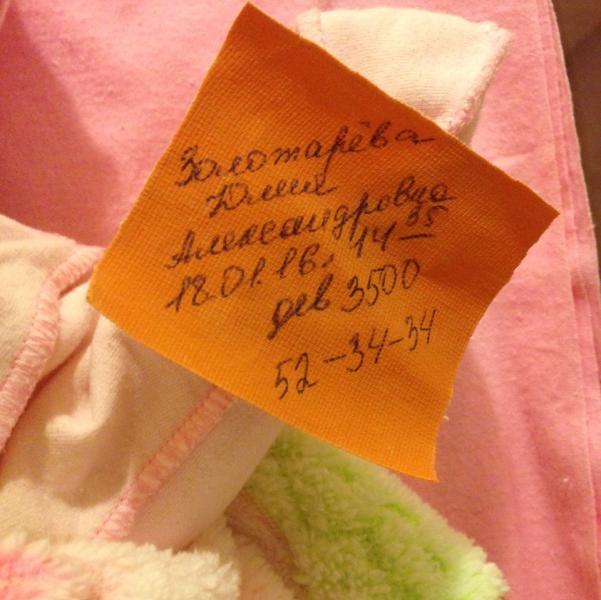 Золотарёва
Юлия
Александровна
18.01.16г. 14 35
дев 3500
52-34-34